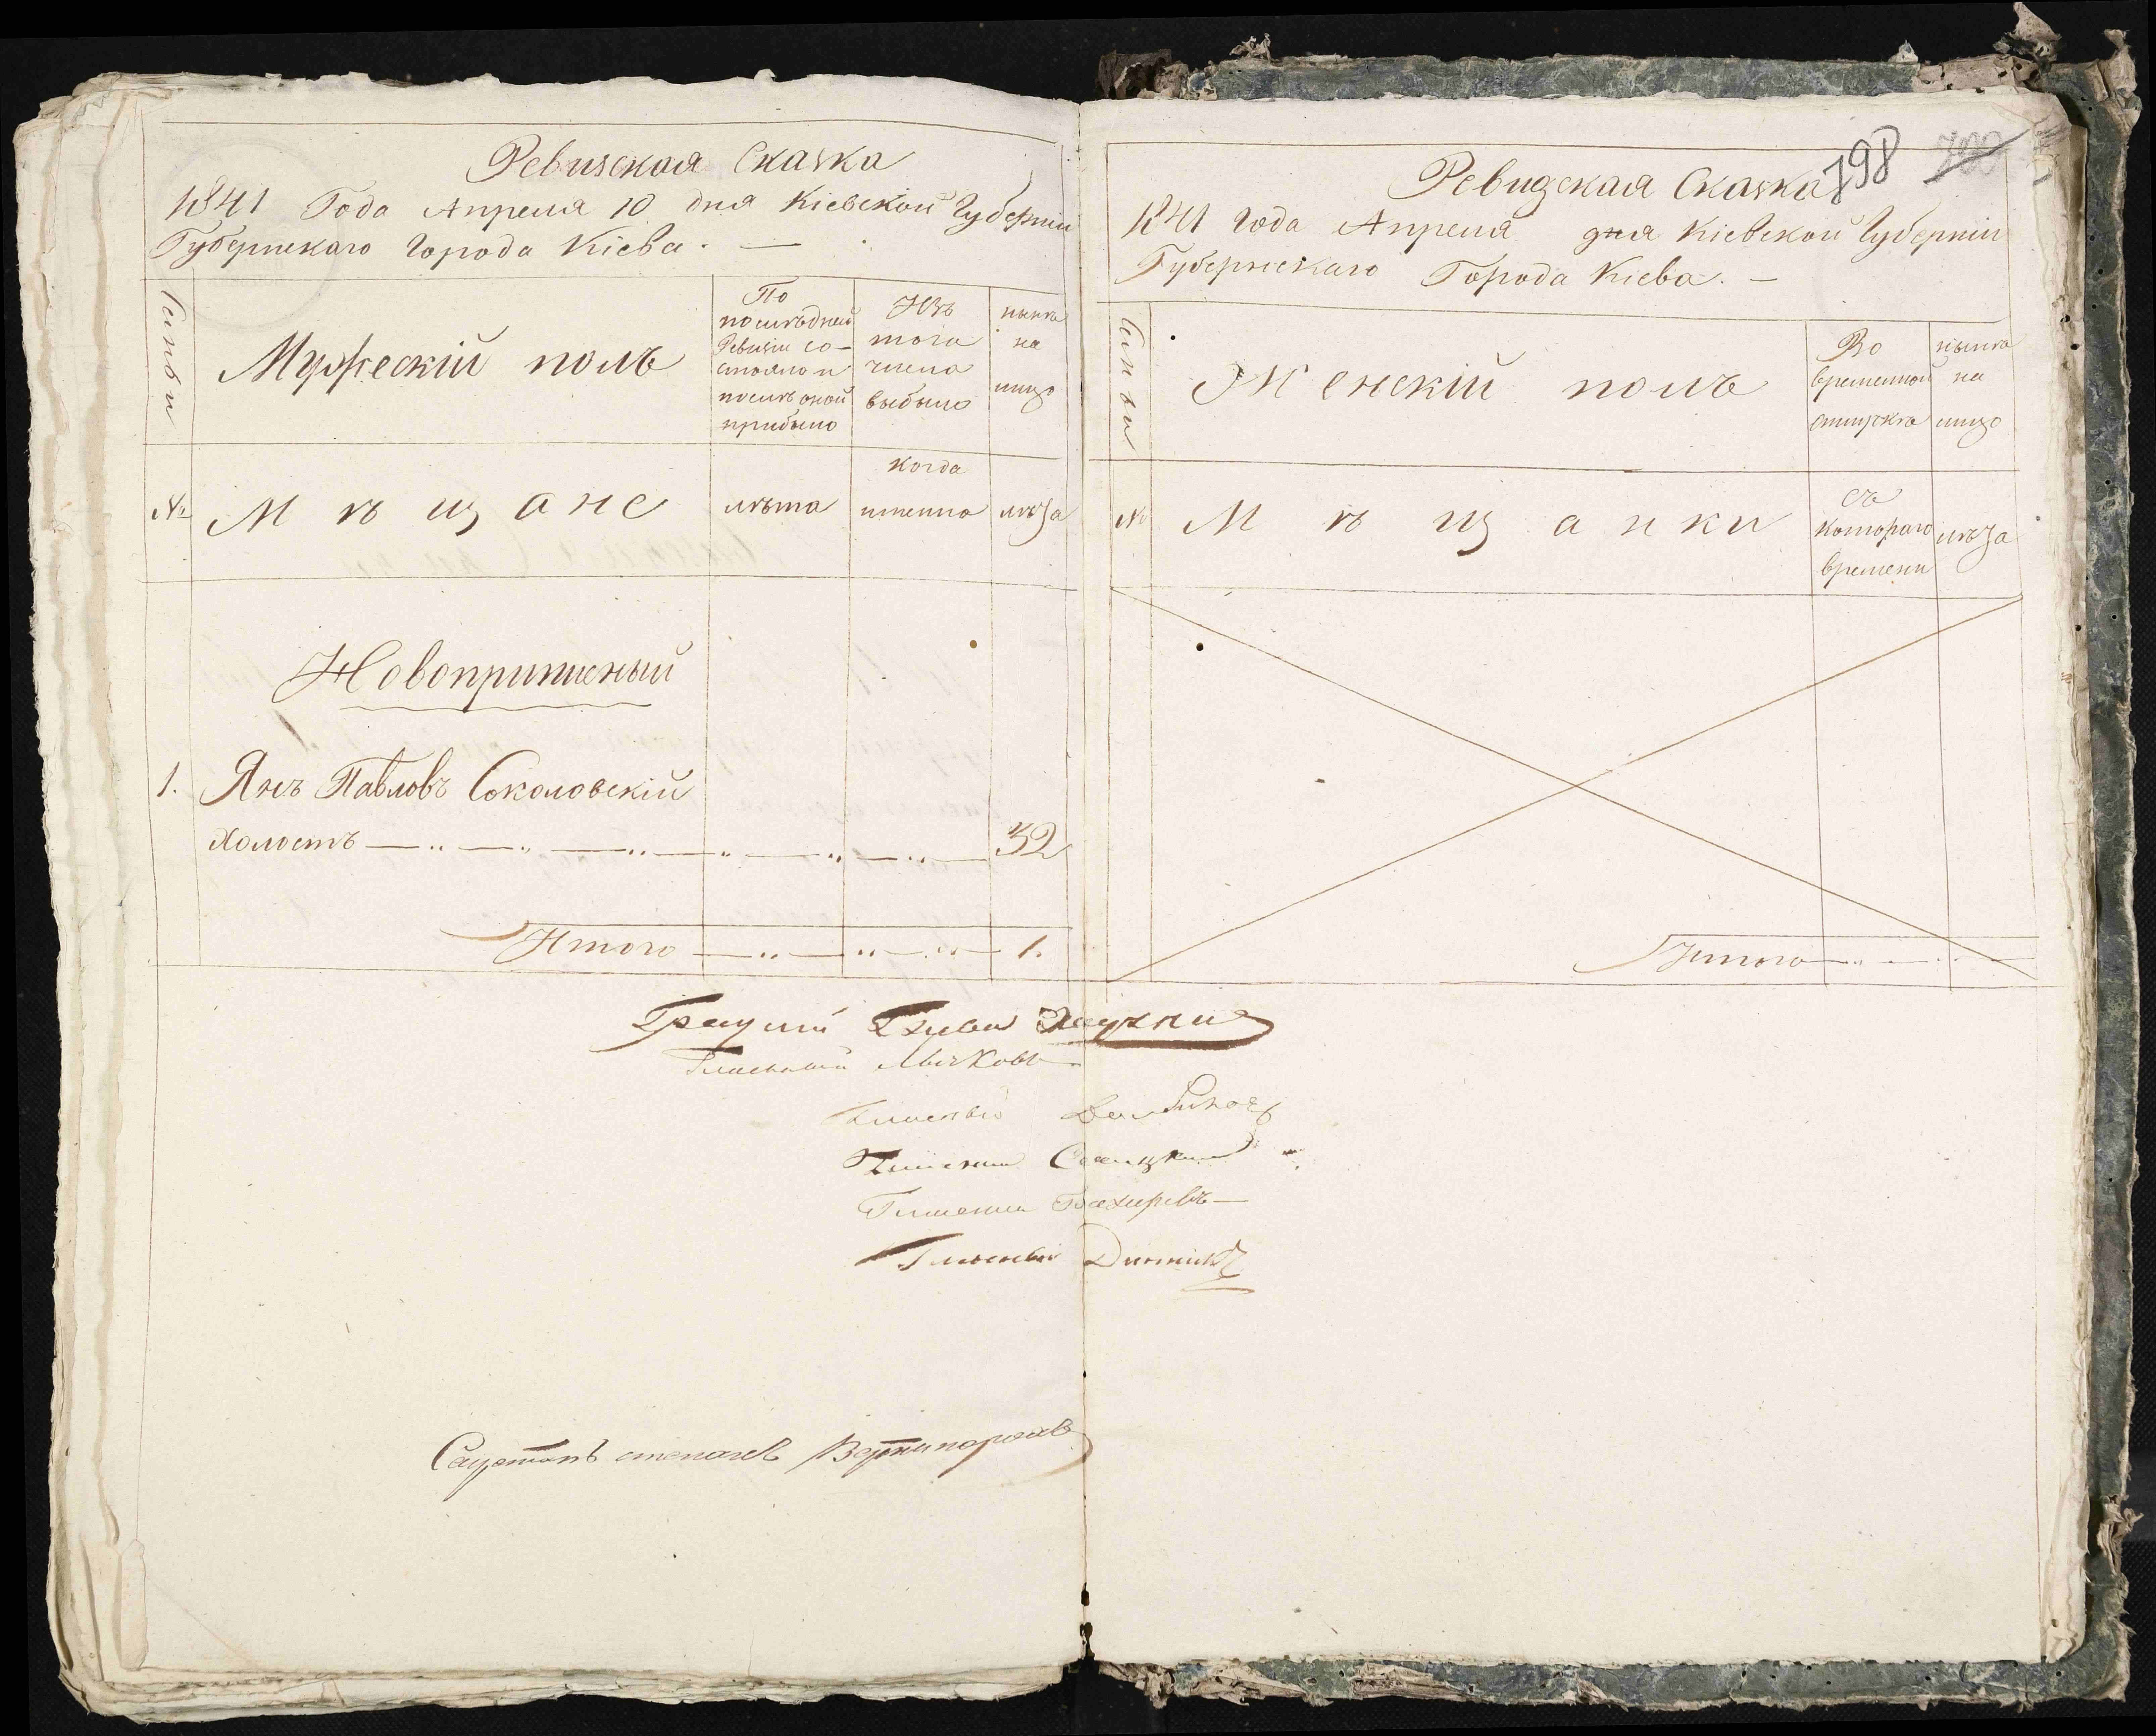 Ревизская Сказка
1841 Года Апреля 10 дня Кіевской Губерніи
Губернскаго Города Кіева. —
Семьи
Мужескій полъ
По
послѣдней
Ревизіи со-
стояло и
послѣ оной
прибыло
Изъ
того
числа
выбыло
нынѣ
на
лицо
№
Мѣщане
лѣта
когда
именно
лѣта
Новопришлый
1. Янъ Павловъ Соколовскій
холостъ — 32
Итого — 1.
798
700
Ревизская Сказка
1841 Года Апреля дня Кіевской Губерніи
Губернскаго Города Кіева. —
Семьи
Женскій полъ
Во
временной
отлучкѣ
нынѣ
на
лицо
№
Мѣщанки
съ
котораго
времени
лѣта
Итого
Гласный
Гласный
Гласный
Гласный Бахиревъ
Гласный
Степановъ